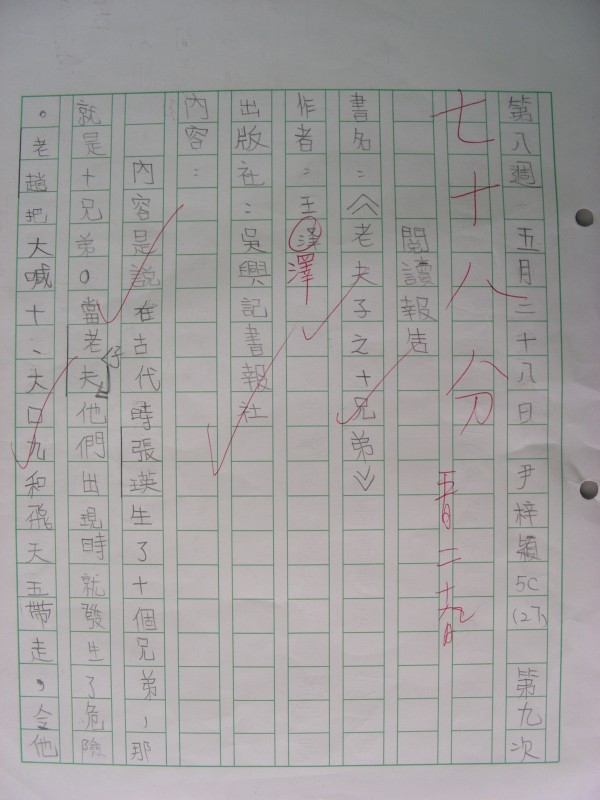 第八週 五月二十八日 尹梓穎 5C (27) 第九次
七十八分 五月二十九日
閱讀報告
書名：《老夫子之十兄弟》
作者：王澤
出版社：吳興記書報社
內容：
內容是說在古代時張瑛生了十個兄弟，那
就是十兄弟。當老夫仔他們出現時就發生了危險
。老趙把大喊十、大口九和飛天五帶走，令他